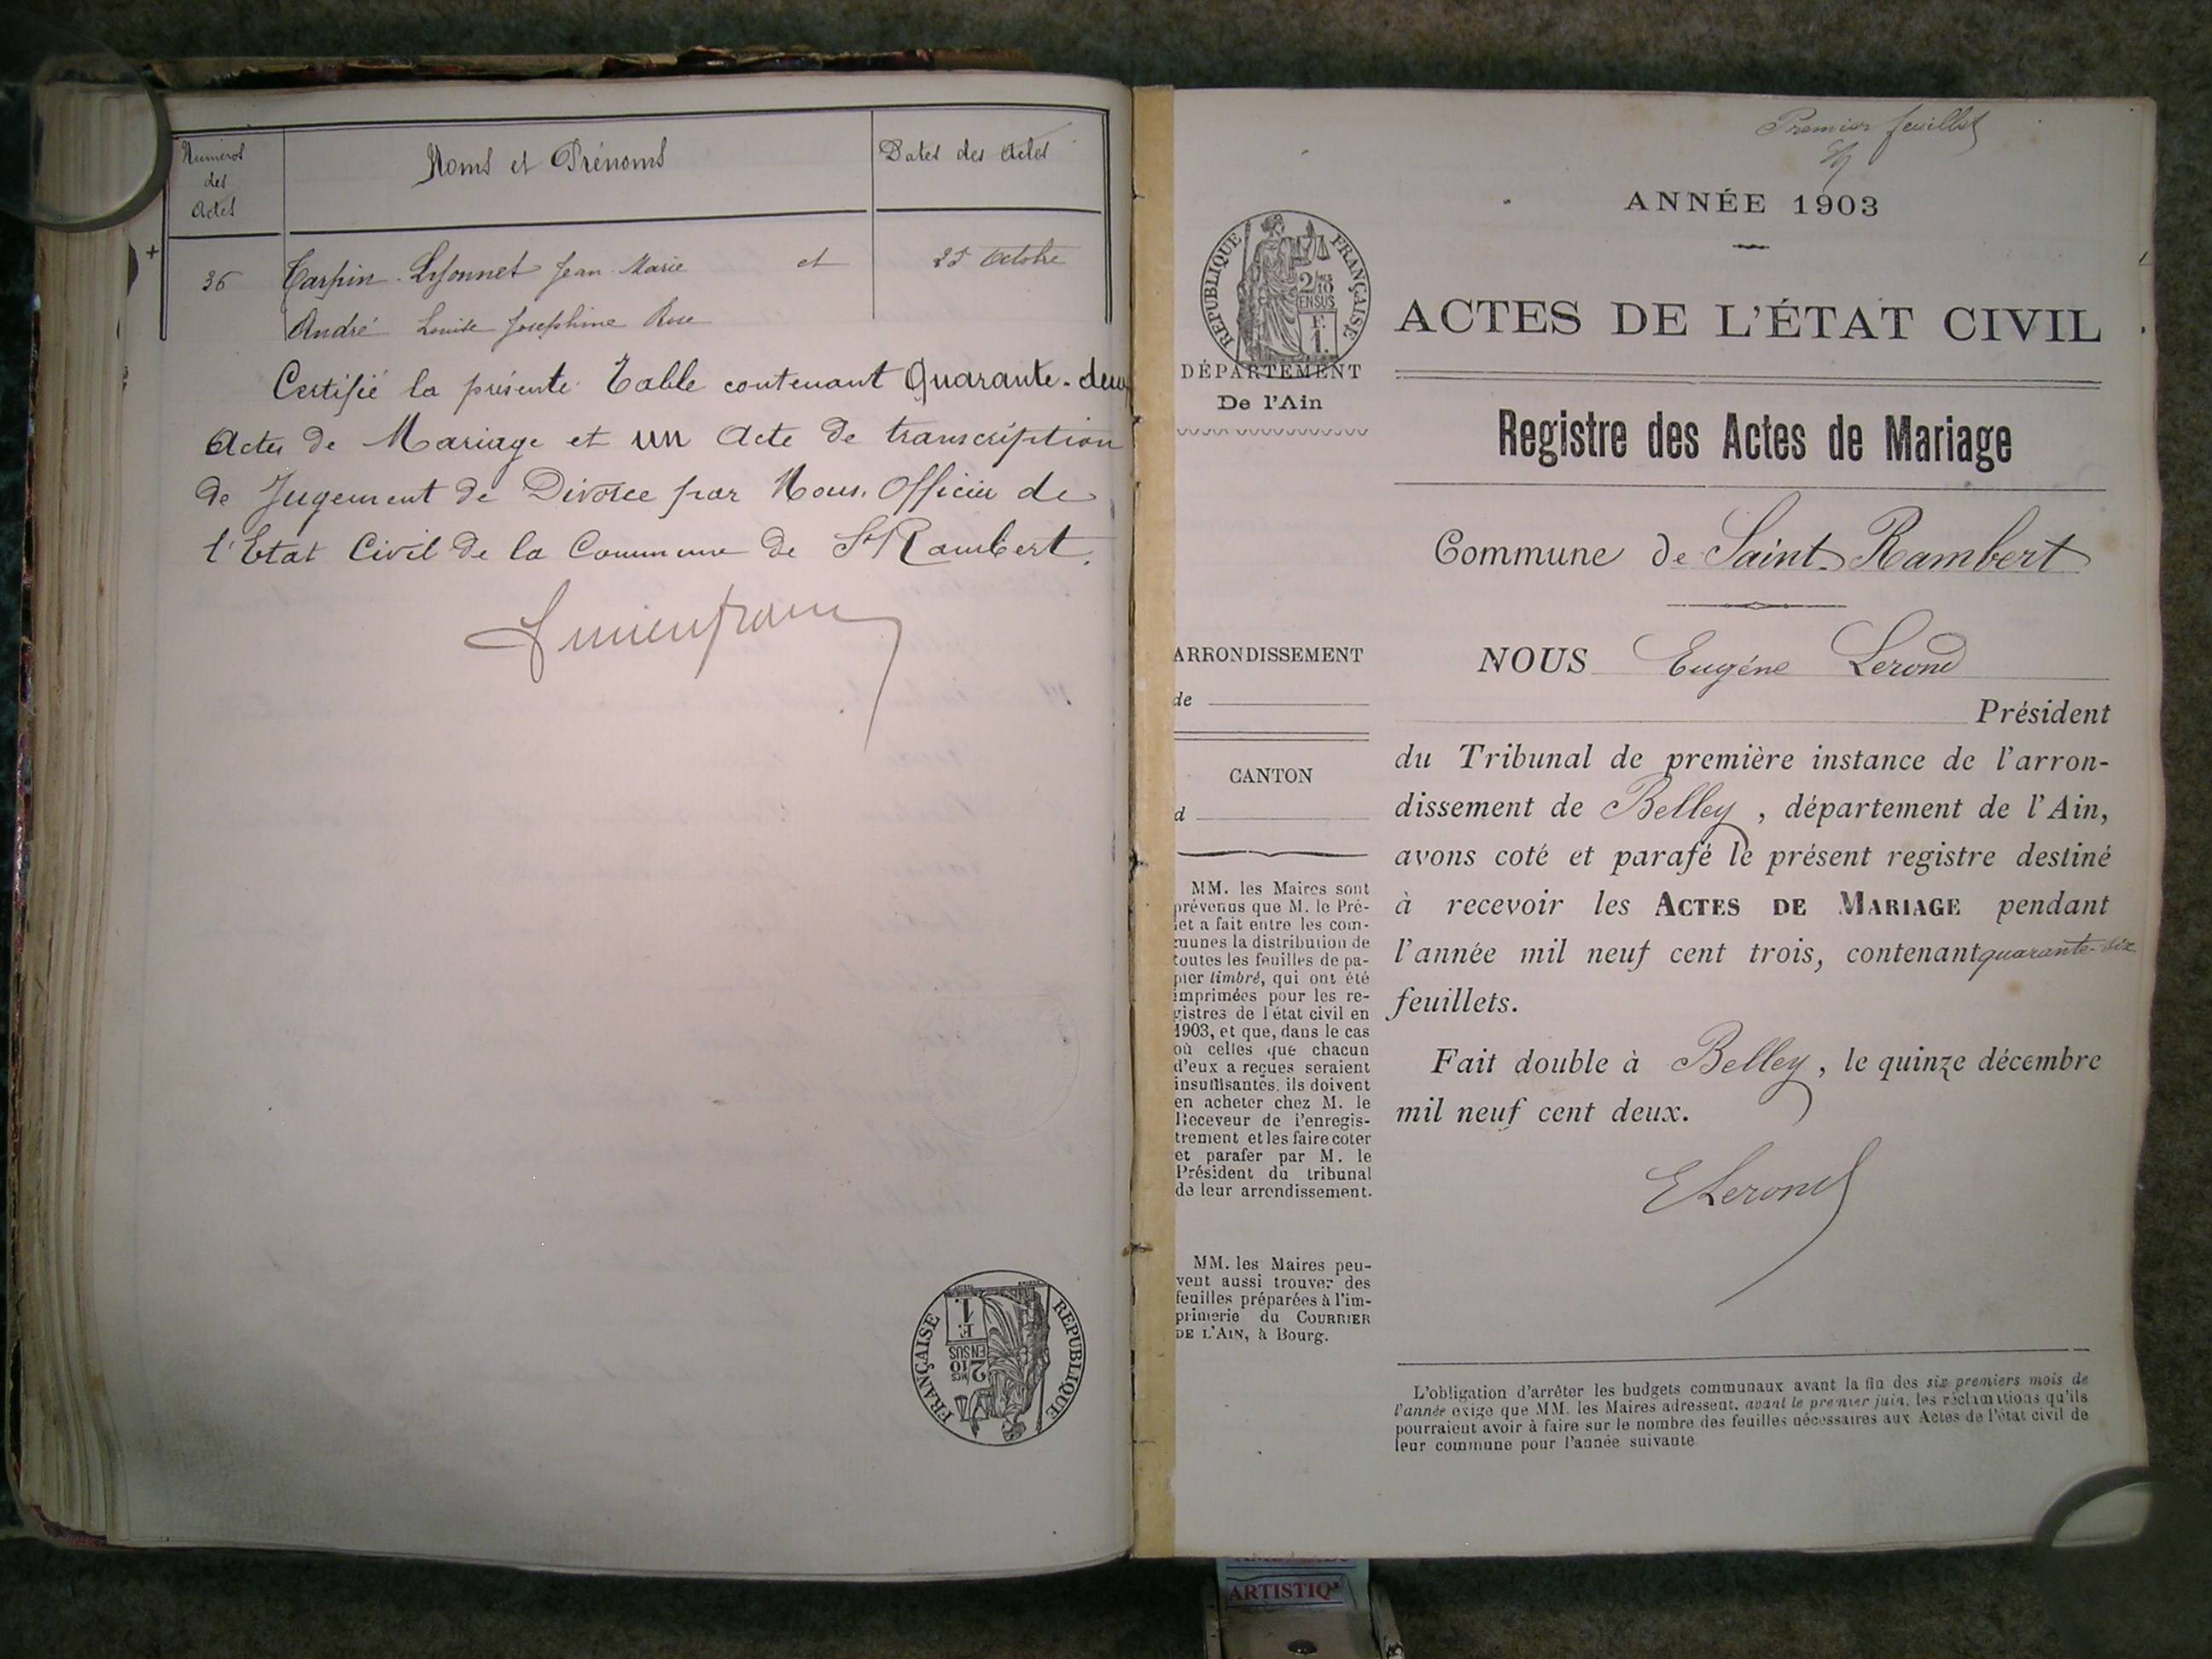 Numéros
des
Actes
Noms et Prénoms
Dates des Actes
36
Tarpin-Lyonnet Jean Marie et
25 Octobre
André Louise Joséphine Rose
Certifié la présente Table contenant Quarante-deux
Actes de Mariage et un Acte de transcription
de Jugement de Divorce par Nous, Officier de
l'Etat Civil de la Commune de St Rambert.
RÉPUBLIQUE FRANÇAISE
2/10
EN SUS
1 F.
Premier feuillet
ANNÉE 1903
RÉPUBLIQUE FRANÇAISE
2/10
EN SUS
F.
1.
DÉPARTEMENT
De l'Ain
ACTES DE L'ÉTAT CIVIL
Registre des Actes de Mariage
Commune de Saint-Rambert
ARRONDISSEMENT
de
CANTON
d
MM. les Maires sont
prévenus que M. le Pré-
fet a fait entre les com-
munes la distribution de
toutes les feuilles de pa-
pier timbré, qui ont été
imprimées pour les re-
gistres de l'état civil en
1903, et que, dans le cas
où celles que chacun
d'eux a reçues seraient
insuffisantes, ils doivent
en acheter chez M. le
Receveur de l'enregis-
trement et les faire coter
et parafer par M. le
Président du tribunal
de leur arrondissement.
MM. les Maires peu-
vent aussi trouver des
feuilles préparées à l'im-
primerie du COURRIER
DE L'AIN, à Bourg.
NOUS Eugéne Lerond
Président
du Tribunal de première instance de l'arron-
dissement de Belley, département de l'Ain,
avons coté et parafé le présent registre destiné
à recevoir les ACTES DE MARIAGE pendant
l'année mil neuf cent trois, contenant quarante-six
feuillets.
Fait double à Belley, le quinze décembre
mil neuf cent deux.
E Lerond
L'obligation d'arrêter les budgets communaux avant la fin des six premiers mois de
l'année exige que MM. les Maires adressent, avant le premier juin, les réclamations qu'ils
pourraient avoir à faire sur le nombre des feuilles nécessaires aux Actes de l'état civil de
leur commune pour l'année suivante
ARTISTIQ